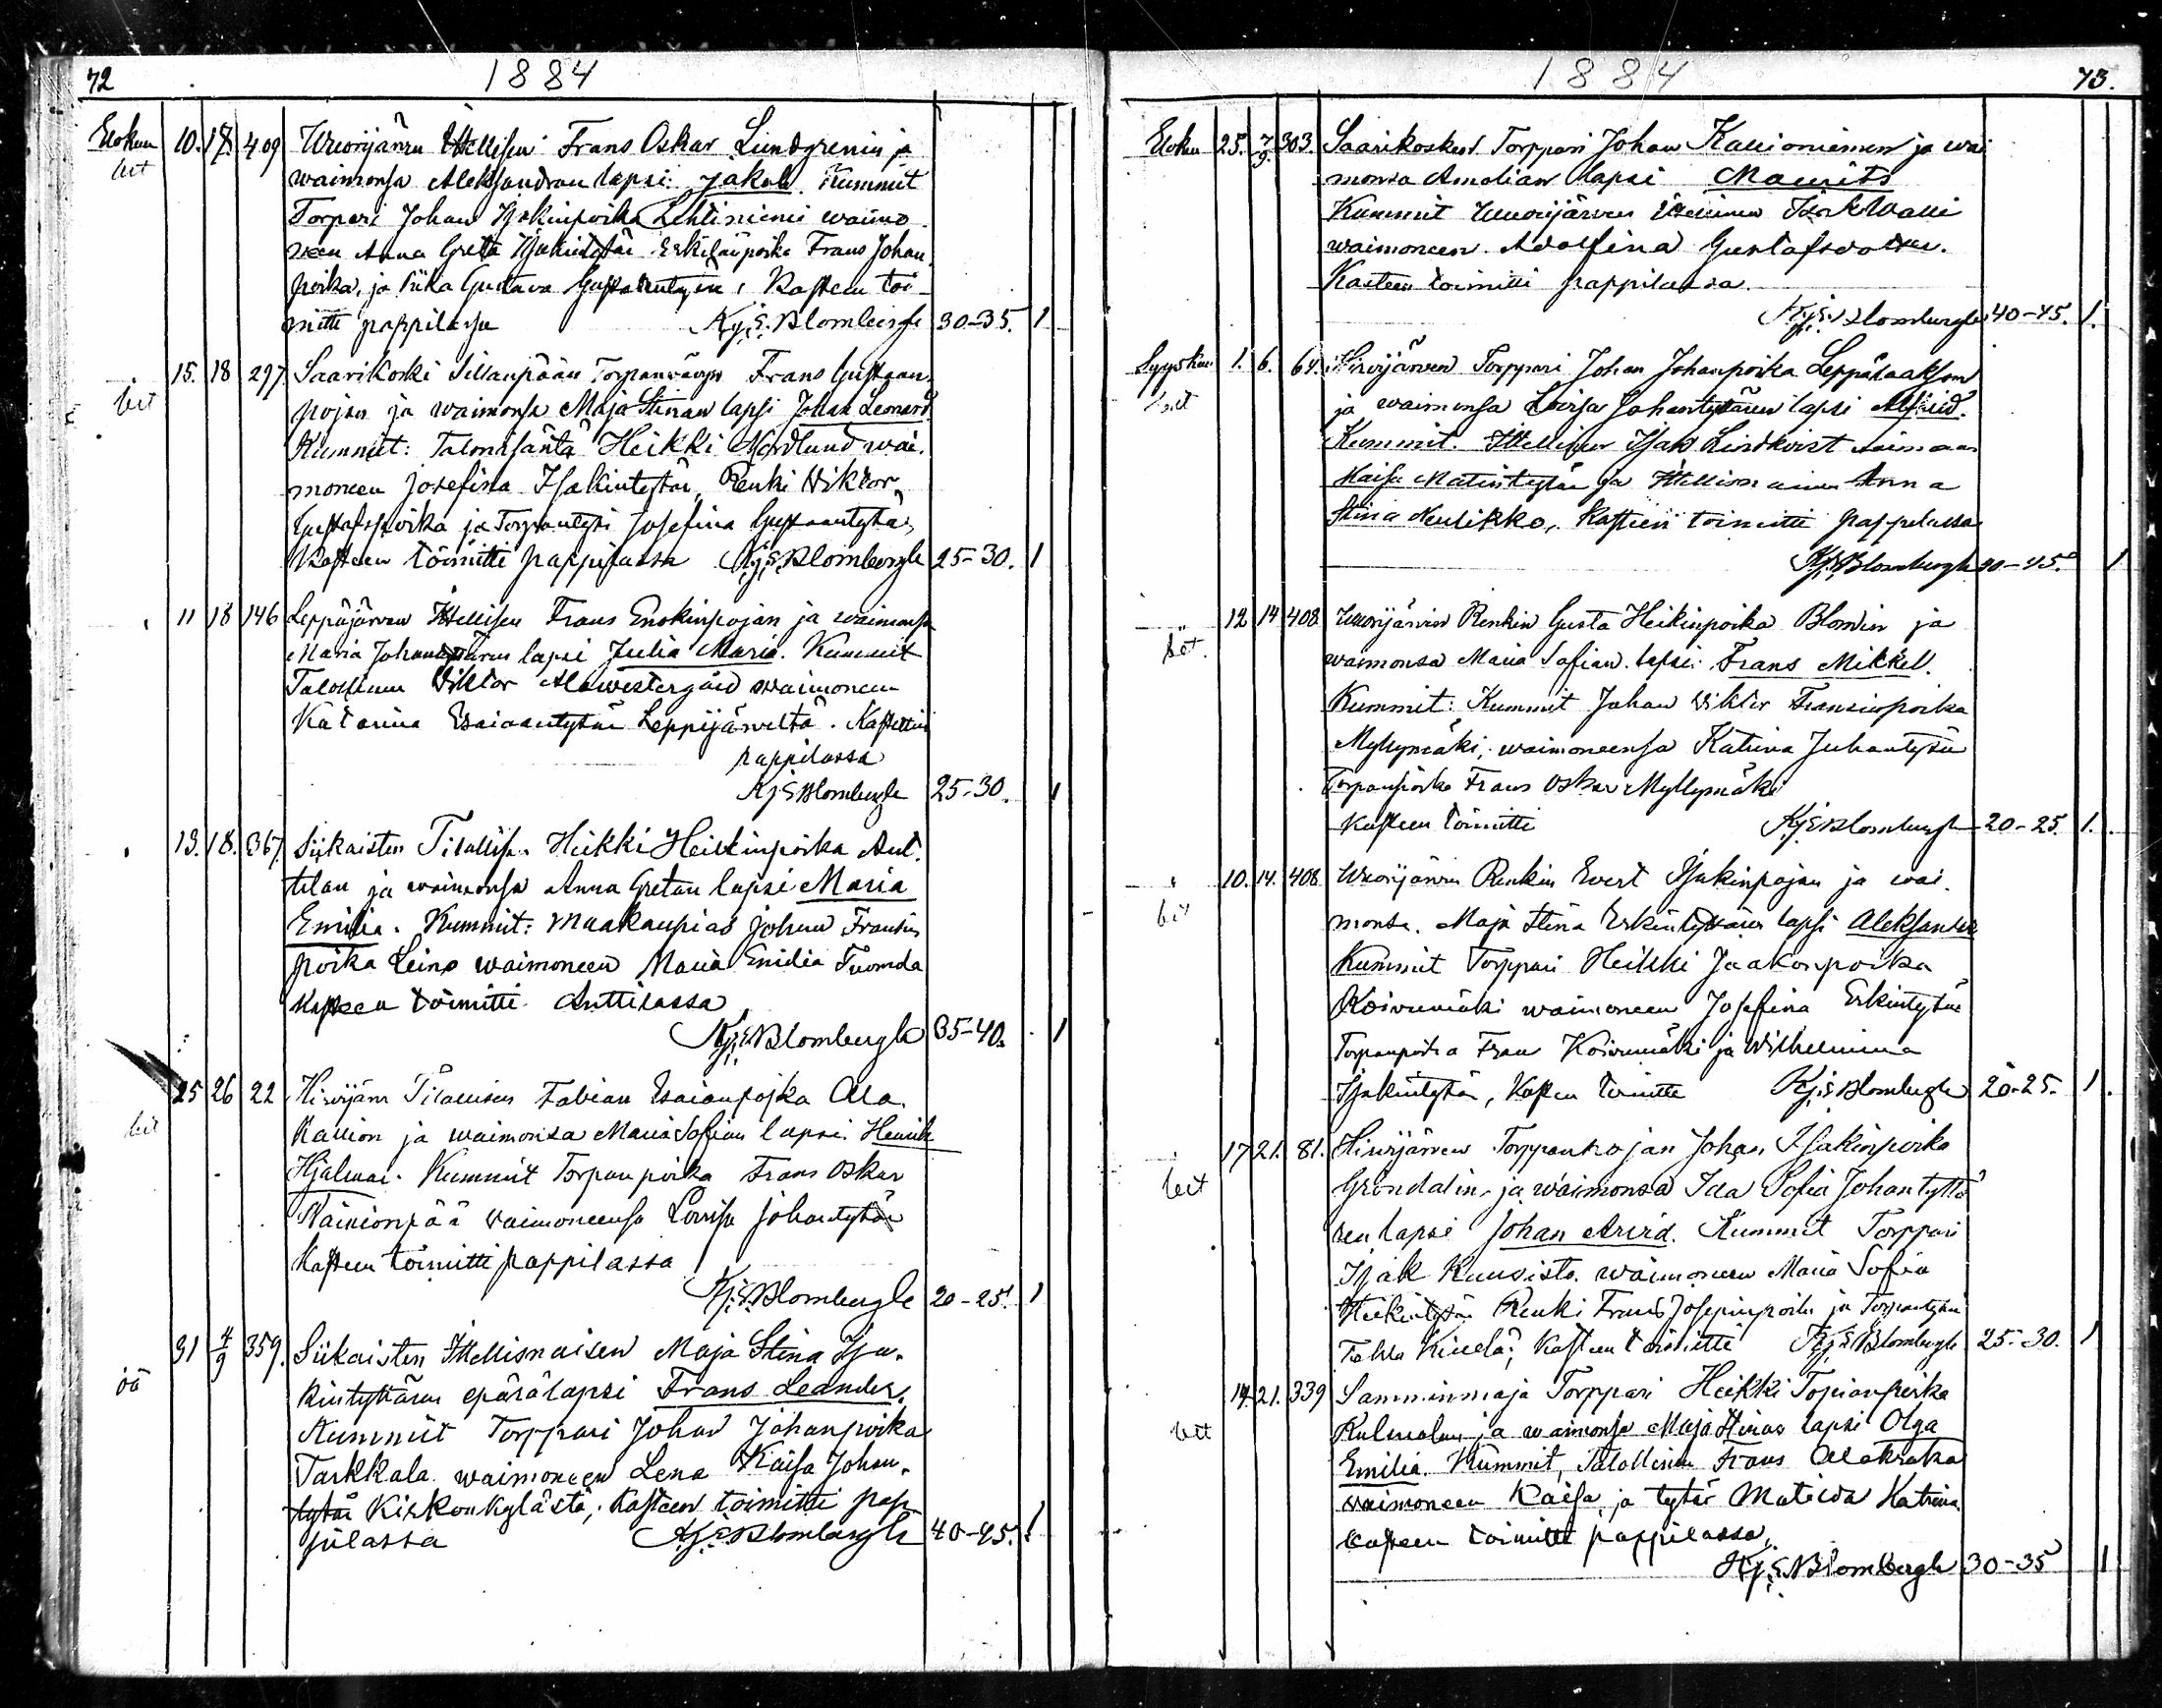 72
1884
Elokuu 10. 17 409 Wuorijärven Ittellisen Frans Oskar Lundgrenin ja
bet waimonsa Aleksandran lapsi: Jakob. Kummit
Torpari Johan Isakinpoika Lehtiniemi waimo
neen Anna Greta Erkinpoika Frans Johan
poika, ja Gustava Kasteen toi-
mitti pappilassa Kj. E. Blombergh 30-35. 1
15. 18 297 Saarikoski Sillanpään Torpanvävyn Frans Gustaan
bet pojan ja waimonsa Maja Stinan lapsi Johan Leonard.
Kummit: Talonisäntä Heikki Nordlund wai-
moneen Josefina Isakintytär, Renki Viktor
Gustafspoika ja Torpantytö Josefina Gustaantytär,
Kasteen toimitti pappilassa Kj. E. Blombergh 25-30. 1
11 18 146 Leppäjärven Ittellisen Frans Enokinpojan ja waimonsa
Maria Johantytären lapsi Julia Maria. Kummit
Talollinen Viktor Alawestergård waimoneen
Katarina Esaiaantytär Leppijärveltä. Kastettiin
pappilassa
Kj E Blombergh 25-30. 1
13. 18. 367. Siikaisten Tilallisen Heikki Heikinpoika Ant-
tilan ja waimonsa Anna Gretan lapsi Maria
Emilia. Kummit: Maakaupias Johan Fransin
poika Leino waimoneen Maria Emilia Tuomda
Kasteen toimitti Anttilassa
Kj. E. Blombergh 35-40. 1
25 26 22 Hirvijärven Tilallisen Fabian Esaianpojka Ala
bet Kallion ja waimonsa Maria Sofian lapsi Henrik
Hjalmar. Kummit Torpanpoika Frans Oskar
waimoneensa Lovisa Johantytär
Kasteen toimitti pappilassa
Kj. E. Blombergh 20-25. 1
31 4/9 359. Siikaisten Ittellisnaisen Maja Stina Isa-
kintyttären epärälapsi Frans Leander,
Kummit Torppari Johan Johanpoika
Tarkkala waimoneen Lena Kaisa Johan-
tytär Kirkonkylästä, Kasteen toimitti pap
pilassa Kj. E. Blombergh 40-45. 1
1884
73.
Elokuu 25. 7/9 303. Saarikosken Torppari Johan Kallioniemen ja wai
monsa Amalian lapsi Maurits
Kummit Wuorijärven Ittellinen Isak Walli
waimoneen Adolfina Gustafsdotter.
Kasteen toimitti pappilassa.
Kj. E. Blombergh 40-45. 1.
Syyskuu 1. 6. 64. Hirvijärven Torppari Johan Johanpoika Leppälaakson
bet ja waimonsa Lovisa Johantytären lapsi Alfrid.
Kummit. Ittellinen Isak Lindkvist waimoneen
Kaisa Matintytär ja Ittellisnainen Anna
Stina Neulikko, Kasteen toimitti pappilassa
Kj. E. Blombergh 40-45. 1
12 14 408 Wuorijärven Renkin Gusta Heikinpoika Blomin ja
bet. waimonsa Maria Sofian lapsi: Frans Mikkel.
Kummit: Kummit Johan Viktor Fransinpoika
Myllymäki, waimoneensa Katrina Juhantytär
Torpanpoika Frans Oskar Myllymäki
Kasteen toimitti Kj E Blombergh 20-25. 1.
10. 14. 408 Wuorijärven Renkin Evert Isakinpojan ja wai-
bet monsa. Maja Stina Erkintyttären lapsi Aleksander
Kummit Torppari Heikki Jaakonpoika
Koivumäki waimoneen Josefina Erkintytär
Torpanpoika Frans Koivumäki ja Wilhelmina
Isakintytär, Kasteen toimitti Kj. E Blombergh 20-25. 1.
17 21. 81. Hirvijärven Torpparinpojan Johan Isakinpoika
bet Gröndalin, ja waimonsa Ida Sofia Johantyttä
ren lapsi Johan Arvid. Kummit Torppari
Isak Kuusisto waimoneen Maria Sofia
Heikintytär Renki Frans Josepinpoika ja Torpantytär
Kasteen toimitti Kj. E Blombergh 25-30. 1
14. 21. 339 Samminmaja Torppari Heikki Topianpoika
bet Kulmalan ja waimonsa Maja Stinas lapsi Olga
Emilia. Kummit, Talollinen Frans
waimoneen Kaisa, ja tytär Matilda Katrina.
Kasteen toimitti pappilassa,
Kj. E. Blombergh 30-35 1